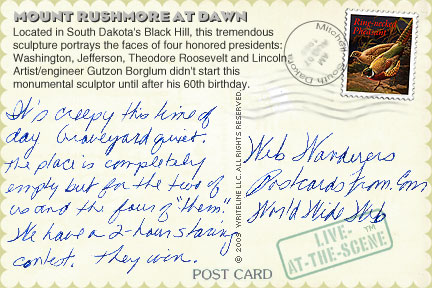 MOUNT RUSHMORE AT DAWN
Located in South Dakota's Black Hill, this tremendous
sculpture portrays the faces of four honored presidents:
Washington, Jefferson, Theodore Roosevelt and Lincoln
Artist/engineer Gutzon Borglum didn't start this
monumental sculptor until after his 60th birthday.
It's creepy this time of
day. Graveyard quiet.
The place is completely
empty but for the two of
us and the four of "them."
We have a 2-hour staring
contest. They win.
© 2009 WRITELINE LLC. ALL RIGHTS RESERVED.
Mitchell South Dakota
AM
Ring-necked
Pheasant
Web Wanderers
Postcards From.Com
World Wide Web
LIVE-
AT-THE-SCENE™
POST CARD